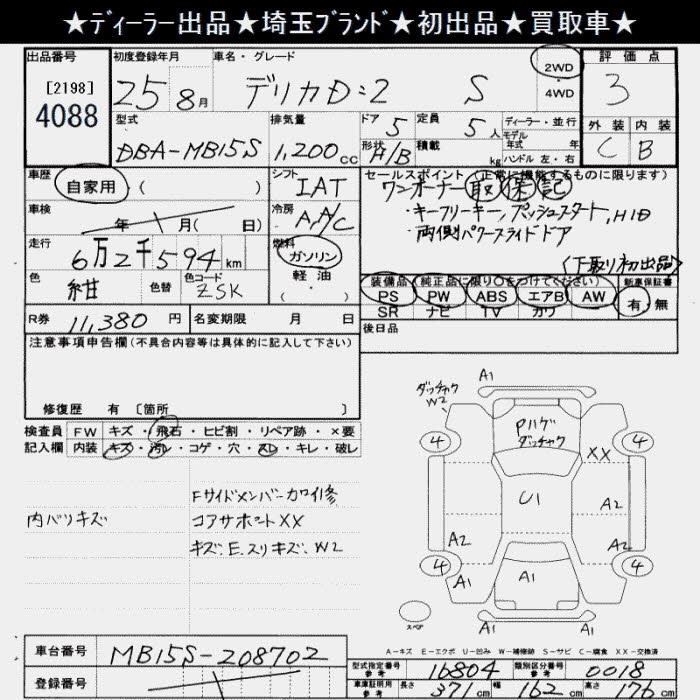 ★ディーラー出品★埼玉ブランド★初出品★買取車★
出品番号 初度登録年月 車名・グレード 評価点
[2198] 25年8月 デリカD:2 S 2WD・4WD 3
4088
型式 排気量 ドア 定員 ディーラー・並行 外装 内装
DBA-MB15S 1,200cc 5 5人 モデル年式 年 C B
形状 H/B 積載 kg ハンドル 左・右
車歴 自家用 ( ) シフト IAT セールスポイント (正常に機能するものに限ります)
ワンオーナー 取 保 記
車検 年 月( 日) 冷房 A,A/C ・キーフリーキー, プッシュスタート, HID
・両側パワースライドドア
走行 6万2千594km 燃料 ガソリン 軽油 ・( )
<下取り初出品>
色 紺 色替 色コード ZSK 装備品 (純正品に限り○をつけてください) 新車保証書
PS PW ABS エアB AW 有・無
SR ナビ TV カワ
R券 11,380円 名変期限 月 日 後日品
注意事項申告欄(不具合内容等は具体的に記入して下さい)
修復歴 有 〔箇所 〕
検査員 FW キズ・飛石・ヒビ割・リペア跡・×要
記入欄 内装 キズ・汚レ・コゲ・穴・スレ・キレ・破レ
内バリキズ
Fサイドメンバーカワイ修
コアサポートXX
キズ.E.スリキズ.W2
A1
ダッチャク
W2
Pハゲ
ダッチャク
4 4
XX
U1
A2
A2 A2
4 4
A1 A1 A1
スペア
A1
A-キズ E-エクボ U-凹み W-補修跡 S-サビ C-腐食 XX-交換済
車台番号 MB15S-208702
登録番号
型式指定番号 参考 16804 類別区分番号 参考 0018
車庫証明用 参考 長さ 371cm 幅 162cm 高さ 176cm